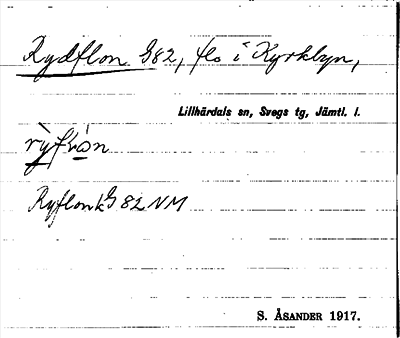 Rydflon G82, flo i Kyrkbyn,
Lillhärdals sn, Svegs tg, Jämtl. l.
Ryflon k G 82 NM
S. ÅSANDER 1917.